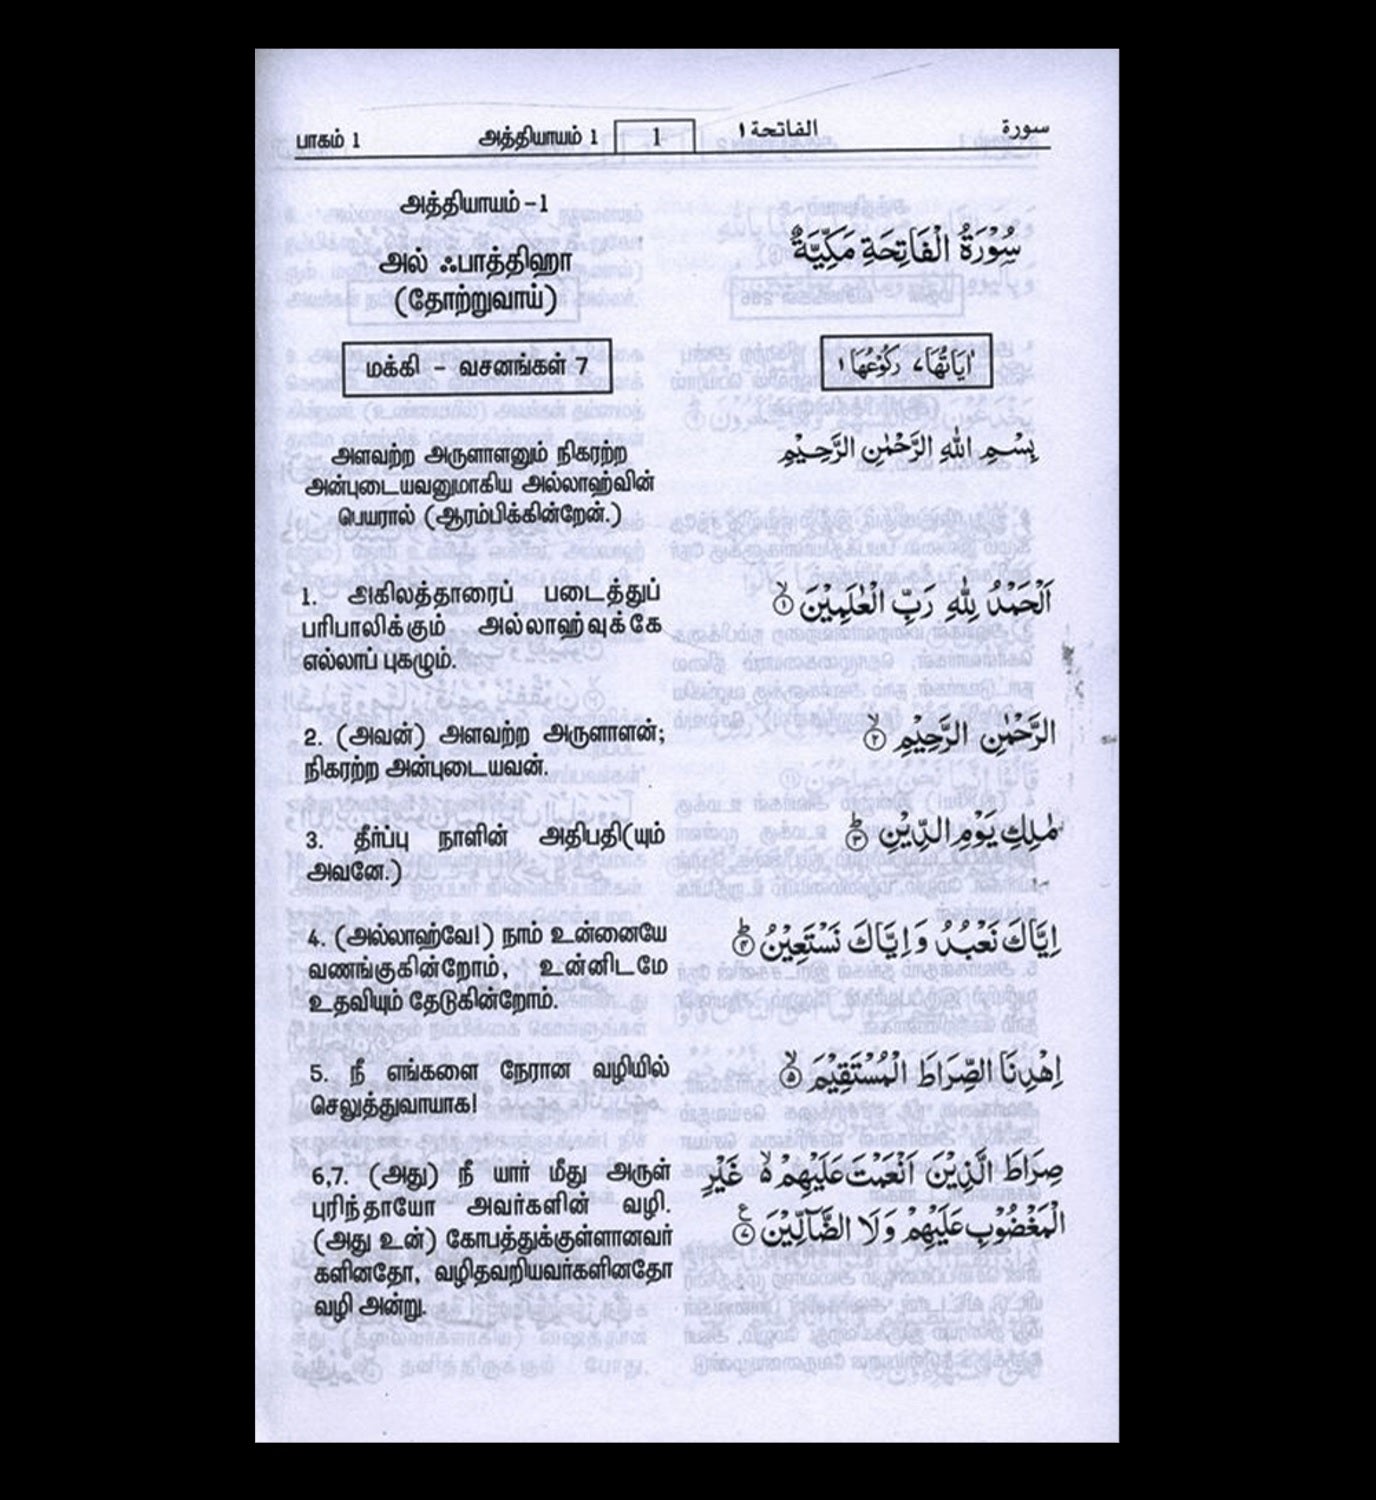 பாகம் 1 அத்தியாயம் 1 1 الفاتحة ١ سورة
அத்தியாயம் -1
அல் ஃபாத்திஹா
(தோற்றுவாய்)
மக்கி - வசனங்கள் 7
அளவற்ற அருளாளனும் நிகரற்ற
அன்புடையவனுமாகிய அல்லாஹ்வின்
பெயரால் (ஆரம்பிக்கின்றேன்.)
1. அகிலத்தாரைப் படைத்துப்
பரிபாலிக்கும் அல்லாஹ்வுக்கே
எல்லாப் புகழும்.
2. (அவன்) அளவற்ற அருளாளன்;
நிகரற்ற அன்புடையவன்.
3. தீர்ப்பு நாளின் அதிபதி(யும்
அவனே.)
4. (அல்லாஹ்வே!) நாம் உன்னையே
வணங்குகின்றோம், உன்னிடமே
உதவியும் தேடுகின்றோம்.
5. நீ எங்களை நேரான வழியில்
செலுத்துவாயாக!
6,7. (அது) நீ யார் மீது அருள்
புரிந்தாயோ அவர்களின் வழி.
(அது உன்) கோபத்துக்குள்ளானவர்
களினதோ, வழிதவறியவர்களினதோ
வழி அன்று.
سُوْرَةُ الْفَاتِحَةِ مَكِّيَّةٌ
اٰيَاتُهَا ٧ رُكُوْعُهَا ١
بِسْمِ اللّٰهِ الرَّحْمٰنِ الرَّحِيْمِ
اَلْحَمْدُ لِلّٰهِ رَبِّ الْعٰلَمِيْنَ ۙ﴿١﴾
الرَّحْمٰنِ الرَّحِيْمِ ۙ﴿٢﴾
مٰلِكِ يَوْمِ الدِّيْنِ ؕ﴿٣﴾
اِيَّاكَ نَعْبُدُ وَ اِيَّاكَ نَسْتَعِيْنُ ؕ﴿۴﴾
اِهْدِنَا الصِّرَاطَ الْمُسْتَقِيْمَ ۙ﴿۵﴾
صِرَاطَ الَّذِيْنَ اَنْعَمْتَ عَلَيْهِمْ ۙ۬ غَيْرِ
الْمَغْضُوْبِ عَلَيْهِمْ وَلَا الضَّآلِّيْنَ ﴿٧﴾ ع